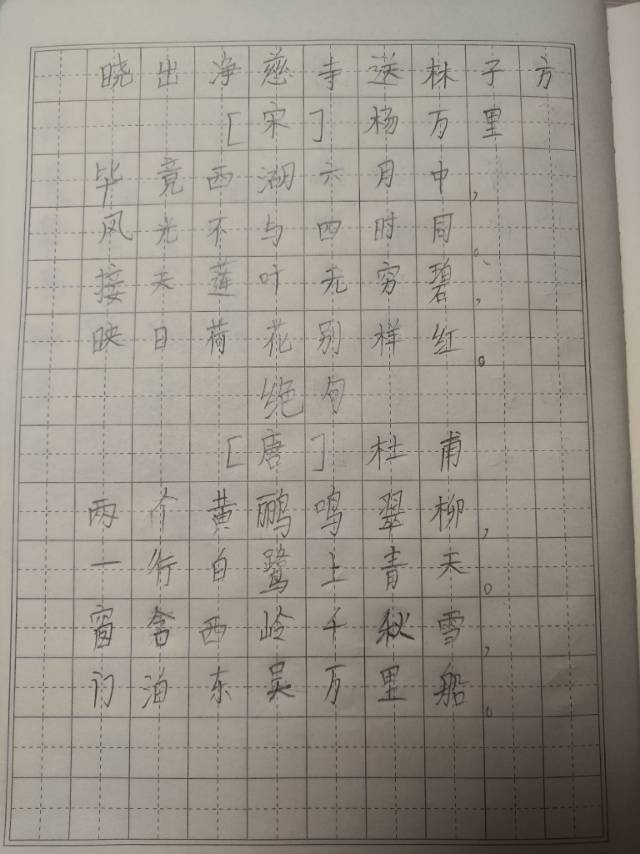 晓出净慈寺送林子方
[宋] 杨万里
毕竟西湖六月中，
风光不与四时同。
接天莲叶无穷碧，
映日荷花别样红。
绝句
[唐] 杜甫
两个黄鹂鸣翠柳，
一行白鹭上青天。
窗含西岭千秋雪，
门泊东吴万里船。